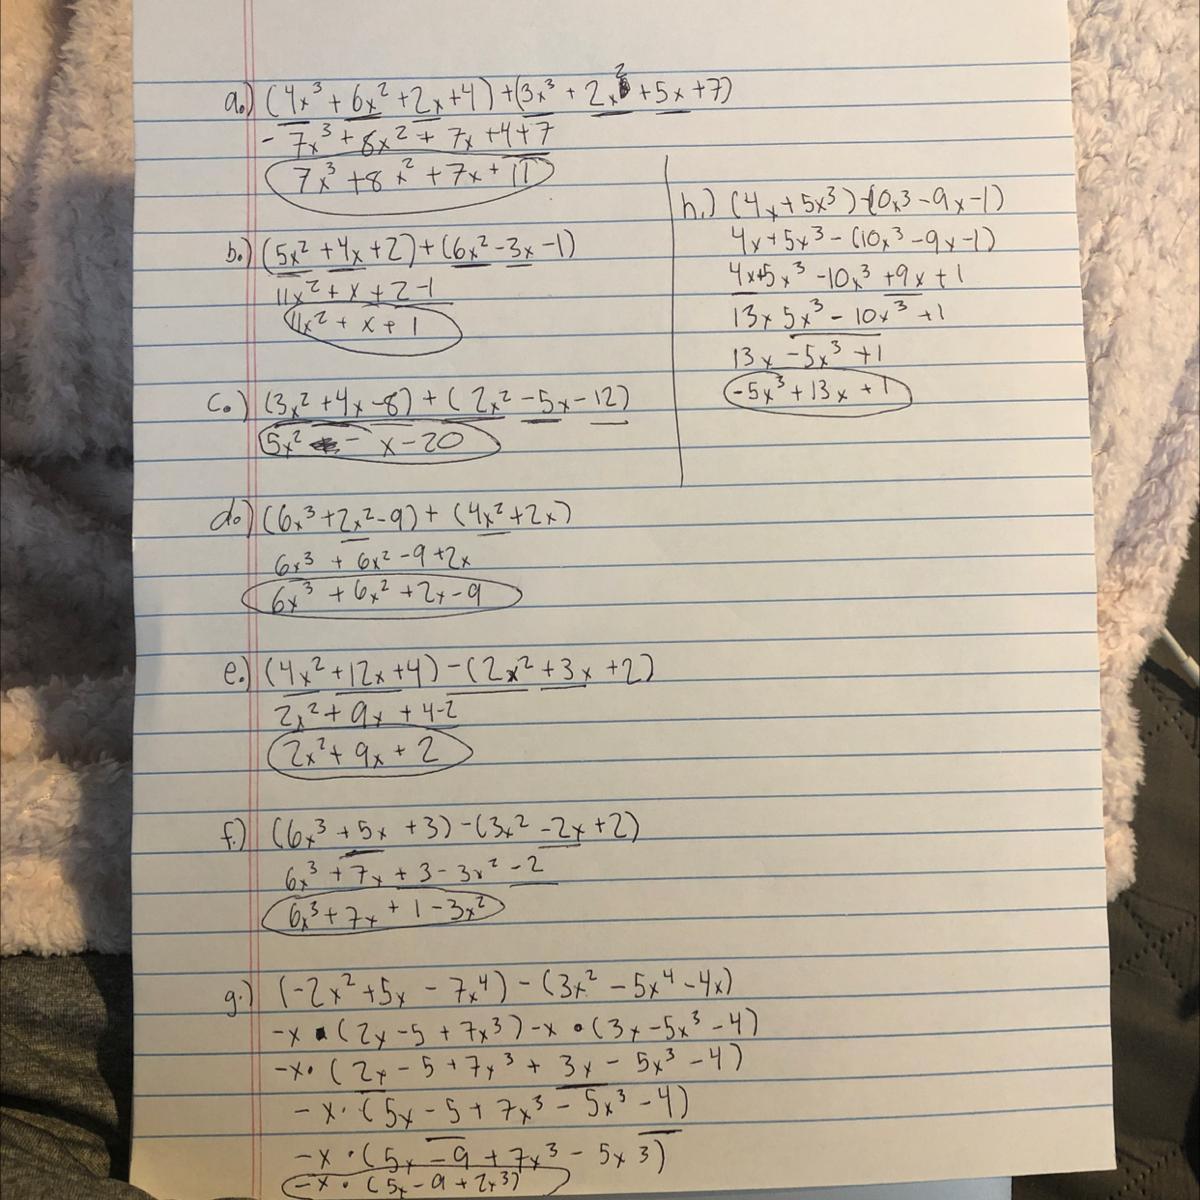 a.) (4x³ + 6x² + 2x + 4) + (3x³ + 2x² + 5x + 7)
- 7x³ + 8x² + 7x + 4 + 7
7x³ + 8x² + 7x + 11
b.) (5x² + 4x + 2) + (6x² - 3x - 1)
11x² + x + 2 - 1
11x² + x + 1
c.) (3x² + 4x - 8) + (2x² - 5x - 12)
5x² - x - 20
d.) (6x³ + 2x² - 9) + (4x² + 2x)
6x³ + 6x² - 9 + 2x
6x³ + 6x² + 2x - 9
e.) (4x² + 12x + 4) - (2x² + 3x + 2)
2x² + 9x + 4 - 2
2x² + 9x + 2
f.) (6x³ + 5x + 3) - (3x² - 2x + 2)
6x³ + 7x + 3 - 3x² - 2
6x³ + 7x + 1 - 3x²
g.) (-2x² + 5x - 7x⁴) - (3x² - 5x⁴ - 4x)
-x • (2x - 5 + 7x³) - x • (3x - 5x³ - 4)
-x • (2x - 5 + 7x³ + 3x - 5x³ - 4)
-x • (5x - 5 + 7x³ - 5x³ - 4)
-x • (5x - 9 + 7x³ - 5x3)
-x • (5x - 9 + 2x³)
h.) (4x + 5x³) - (10x³ - 9x - 1)
4x + 5x³ - (10x³ - 9x - 1)
4x + 5x³ - 10x³ + 9x + 1
13x 5x³ - 10x³ + 1
13x - 5x³ + 1
-5x³ + 13x + 1